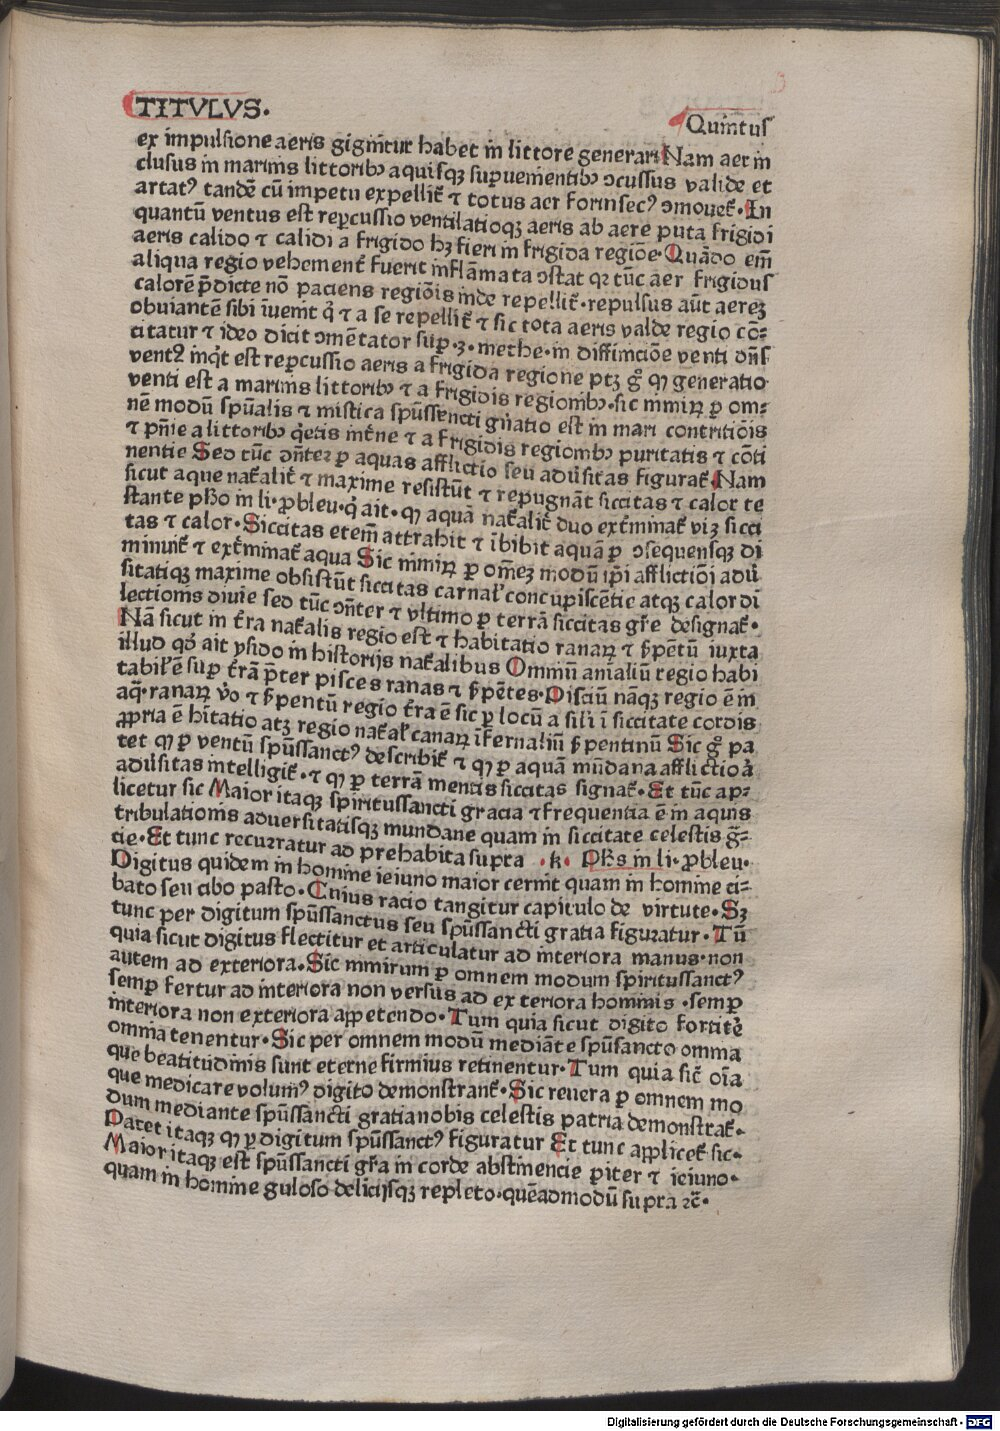 TITVLVS.
Quintus
ex impulsione aeris gignit̃ur habet in littore generari Nam aer in
clusus in marinis littoribꝫ aquisqꝫ suꝑuenientibꝫ ↄcussus valide et
artatꝰ tandē cū impetu expellit̃ ⁊ totus aer forinsecꝰ ↄmouet̃. In
quantū ventus est reꝑcussio ventilatioqꝫ aeris ab aere puta frigidi
aeris calido ⁊ calidi a frigido hꝫ fieri in frigida regiōe. Quādo em̄
aliqua regio vehement̃ fuerit inflāmata ↄstat qꝛ tūc aer frigidus
calorē p̄dicte nō paciens regiōis inde repellit̃. repulsus aūt aereꝫ
obuiantē sibi īuenit q̇ ⁊ a se repellit̃ ⁊ sic tota aeris valde regio cō-
citatur ⁊ ideo dicit ↄmētator suꝑ.3.methe.in diffiniciōe venti dn̄s
ventꝰ inq̇t est reꝑcussio aeris a frigida regione ptꝫ gͦ qꝙ generatio
venti est a marinis littoribꝫ ⁊ a frigidis regionibꝫ. sic nimiꝝ ꝑ om-
nē modū spūalis ⁊ mistica spūssancti gn̄atio est in mari contritiōis
⁊ pn̄ie a littoribꝫ q̇etis int̄ne ⁊ a frigidis regionibꝫ puritatis ⁊ cōti
nentie Sed tūc ↄn̄teꝛ ꝑ aquas afflictio seu adūsitas figurat̃. Nam
sicut aque nat̃alit̃ ⁊ maxime resistūt ⁊ repugnāt siccitas ⁊ calor te
stante pħo in li. ꝓbleu. q̇ ait. ꝙ aquā nat̃alit̃ duo ext̃minat̃ viꝫ sicci
tas ⁊ calor. Siccitas etem̄ attrahit ⁊ ībibit aquā ꝑ ↄsequensqꝫ di
minuit̃ ⁊ ext̃minat̃ aqua Sic nimiꝝ ꝑ om̄eꝫ modū ip̄i afflictiōi adū
sitatiqꝫ maxime obsistūt siccitas carnał concupiscētie atqꝫ calor di
lectionis diuie sed tūc ↄn̄ter ⁊ vltimo ꝑ terrā siccitas gr̄e designat̃.
Nā sicut in t̃ra nat̃alis regio est ⁊ habitatio ranaꝝ ⁊ ẜpētū iuxta
illud qd̓ ait ysido in historijs nat̃alibus Omniū anialiū regio habi
tabił ē suꝑ t̃rā p̄ter pisces ranas ⁊ ẜpētes. Pisciū nāqꝫ regio ē in
aq̄. ranaꝝ v̓o ⁊ ẜpentū regio t̃ra ē sic ꝑ locū a sil̓i ī siccitate cordis
ꝓpria ē hītatio atqꝫ regio nat̃ał canaꝝ īfernaliū ẜpentinū Sic gͦ pa
tet ꝙ ꝑ ventū spūssanctꝰ describit̃ ⁊ ꝙ ꝑ aquā mūdana afflictio ā
adūsitas intelligit̃. ⁊ ꝙ ꝑ terrā mentis siccitas signat̃. Et tūc ap-
licetur sic Maior itaqꝫ spiritussancti gracia ⁊ frequentia ē in aquis
tribulationis aduersitatisqꝫ mundane quam in siccitate celestis g̃-
tie. Et tunc recurratur ad prehabita supra .k. Pħs in li. ꝓbleu.
Digitus quidem in homine ieiuno maior cernit̃ quam in homine ci-
bato seu cibo pasto. Cuius racio tangitur capitulo de virtute. Sꝫ
tunc per digitum spūssanctus seu spūssancti gratia figuratur. Tū
quia sicut digitus flectitur et articulatur ad interiora manus. non
autem ad exteriora. Sic nimirum ꝑ omnem modum spiritussanctꝰ
semꝑ fertur ad interiora non versus ad exteriora hominis. semꝑ
interiora non exteriora aꝑpetendo. Tum quia sicut digito fortit̓
omnia tenentur. Sic per omnem modū mediāte spūsancto omnia
que beatitudinis sunt eterne firmius retinentur. Tum quia sic̄ oīa
que medicare volumꝰ digito demonstrant̃. Sic reuera ꝑ omnem mo
dum mediante spūssancti gratia nobis celestis patria demonstrat̃.
Patet itaqꝫ ꝙ ꝑ digitum spūssanctꝰ figuratur Et tunc aꝑplicet̃ sic.
Maior itaqꝫ est spūssancti gr̄a in corde abstinencie ꝑiter ⁊ ieiuno.
quam in homine guloso delicijsqꝫ repleto. quēadmodū supra ⁊c̄.
Digitalisierung gefördert durch die Deutsche Forschungsgemeinschaft - DFG